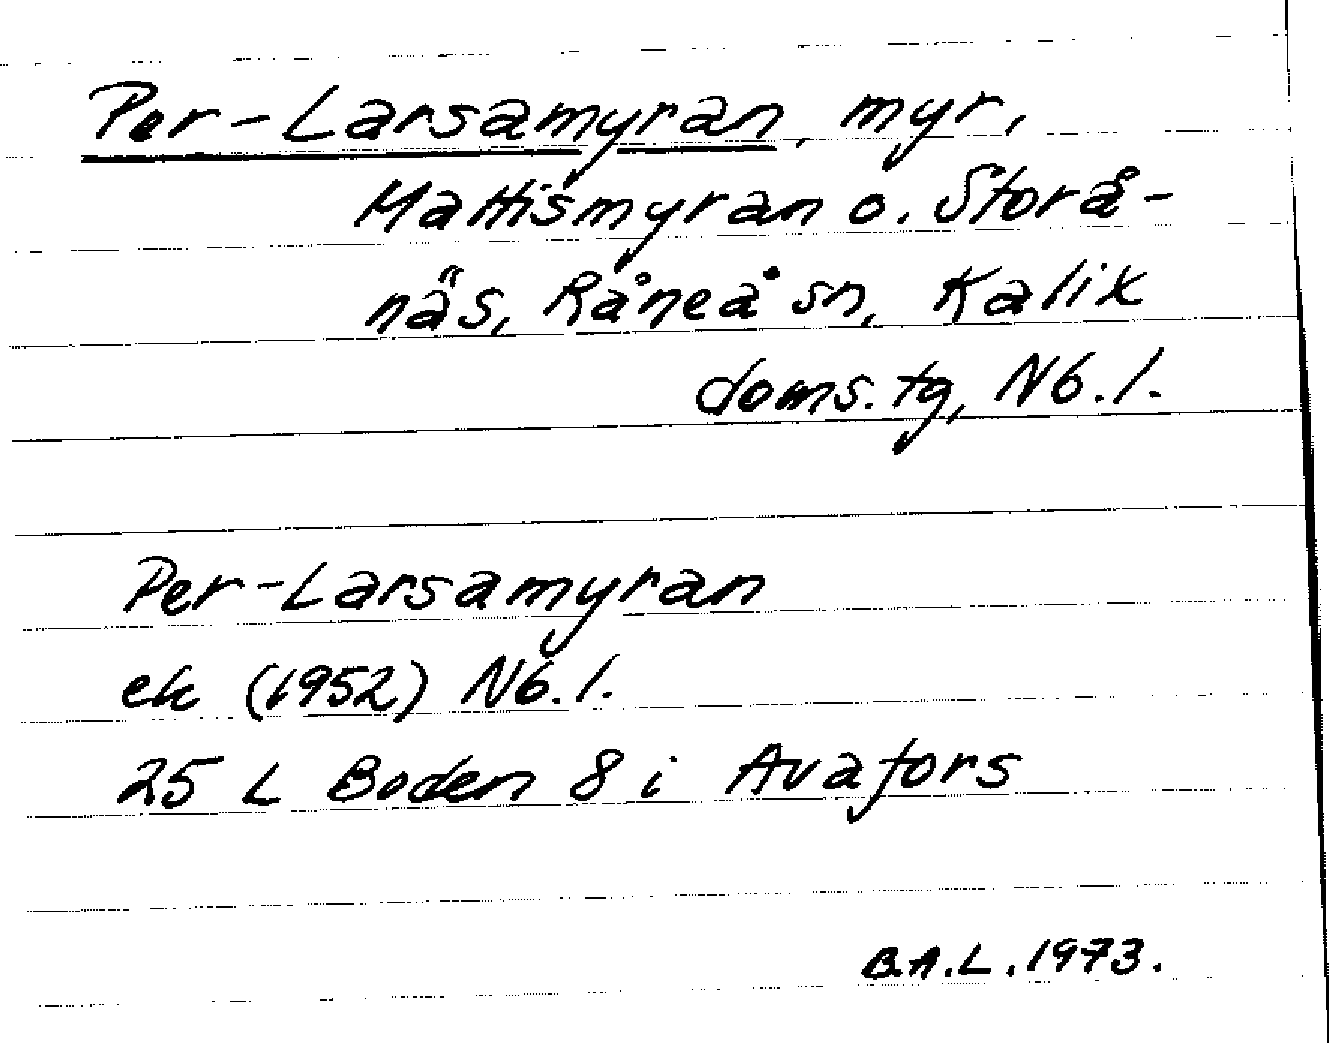 Per-Larsamyran, myr,
Mattismyran o. Storå-
näs, Råneå sn, Kalix
doms. tg, Nb. l.
Per-Larsamyran
ek (1952) Nb. l.
25 L Boden 8 i Avafors
B.A.L. 1973.